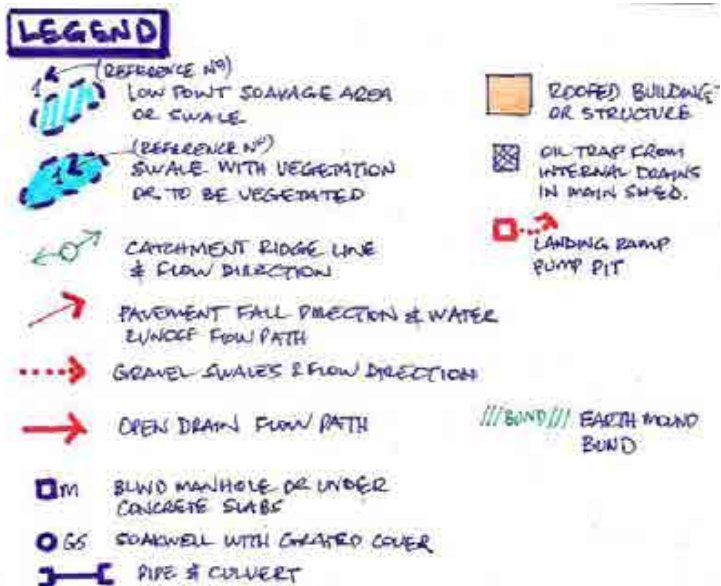 LEGEND
14
(REFERENCE Nº)
LOW POINT SOAKAGE AREA
OR SWALE
12
(REFERENCE Nº)
SWALE WITH VEGETATION
OR TO BE VEGETATED
CATCHMENT RIDGE LINE
& FLOW DIRECTION
PAVEMENT FALL DIRECTION & WATER
RUNOFF FLOW PATH
GRAVEL SWALES & FLOW DIRECTION
OPEN DRAIN FLOW PATH
M BLIND MANHOLE OR UNDER
CONCRETE SLABS
GS SOAKWELL WITH GRATED COVER
PIPE & CULVERT
ROOFED BUILDING
OR STRUCTURE
OIL TRAP FROM
INTERNAL DRAINS
IN MAIN SHED.
LANDING RAMP
PUMP PIT
///BUND/// EARTH MOUND
BUND